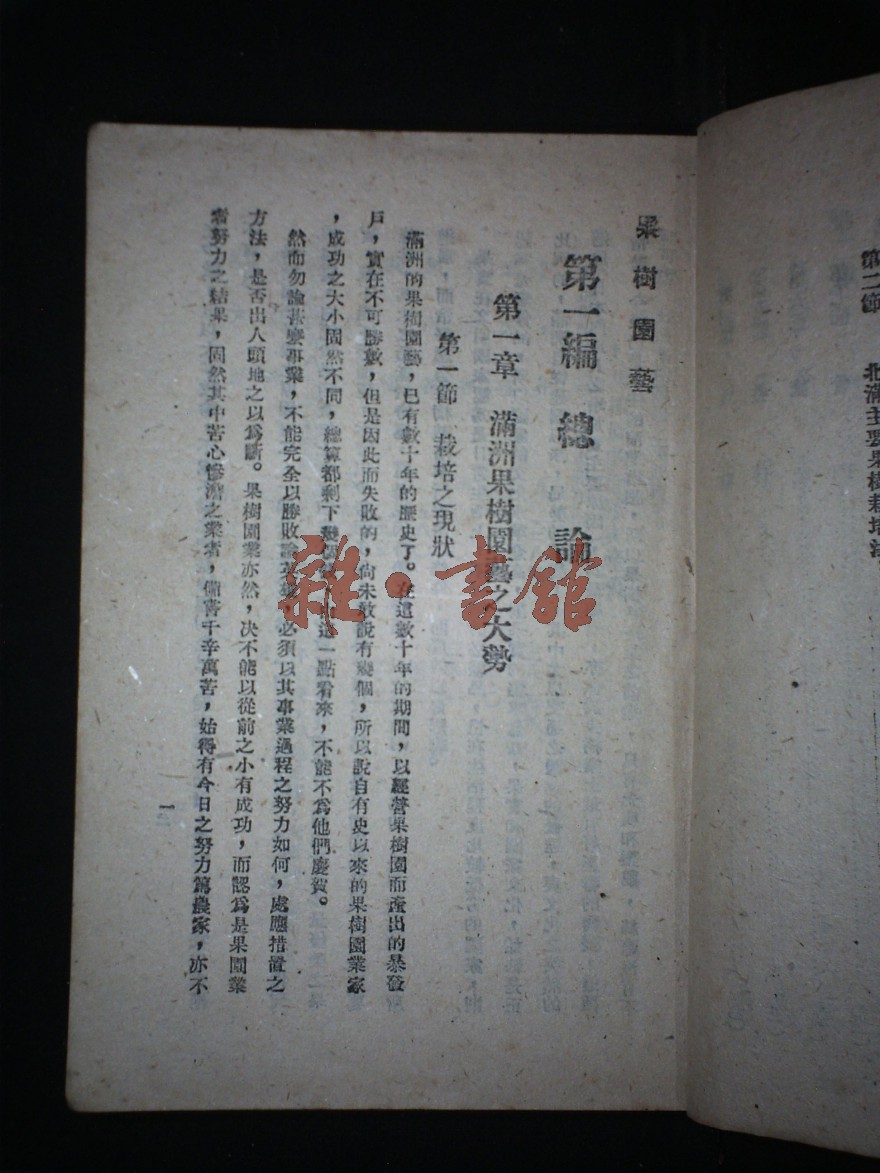 第二節　北滿主要果樹栽培法
果樹園藝
第一編　總論
第一章　滿洲果樹園藝之大勢
第一節　栽培之現狀
滿洲的果樹園藝，已有數十年的歷史了。在這數十年的期間，以經營果樹園而產出的暴發
戶，實在不可勝數，但是因此而失敗的，尚未敢說有幾個，所以說自有史以來的果樹園業家
，成功之大小固然不同，總算都剩下幾個 這一點看來，不能不爲他們慶賀。
然而勿論甚麼事業，不能完全以勝敗論英雄，必須以其事業過程之努力如何，處應措置之
方法，是否出人頭地之以爲斷。果樹園業亦然，决不能以從前之小有成功，而認爲是果園業
者努力之結果，固然其中苦心慘澹之業者，備嘗千辛萬苦，始得有今日之努力篤農家，亦不
一
雜·書館